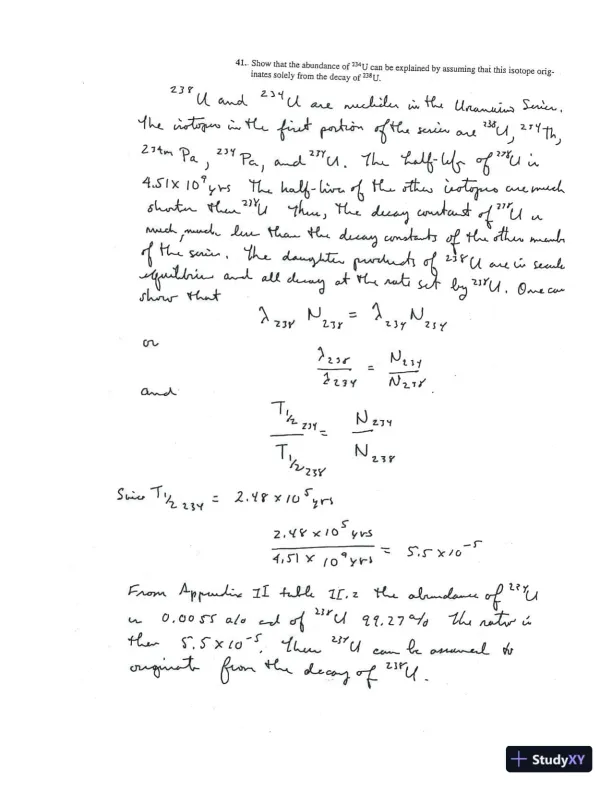 41. Show that the abundance of ²³⁴U can be explained by assuming that this isotope orig-
inates solely from the decay of ²³⁸U.
²³⁸U and ²³⁴U are nuclides in the Uranium Series.
The isotopes in the first portion of the series are ²³⁸U, ²³⁴Th,
²³⁴ᵐPa, ²³⁴Pa, and ²³⁴U. The half-life of ²³⁸U is
4.51 x 10⁹ yrs The half-lives of the other isotopes are much
shorter than ²³⁸U Thus, the decay constant of ²³⁸U is
much, much less than the decay constants of the other memb
of the series. The daughter products of ²³⁸U are in secula
equilibriu and all decay at the rate set by ²³⁸U. One can
show that
λ₂₃₈ N₂₃₈ = λ₂₃₄ N₂₃₄
or
λ₂₃₈ / λ₂₃₄ = N₂₃₄ / N₂₃₈.
and
T½ ₂₃₄ / T½ ₂₃₈ = N₂₃₄ / N₂₃₈
Since T½ ₂₃₄ = 2.48 x 10⁵ yrs
2.48 x 10⁵ yrs / 4.51 x 10⁹ yrs = 5.5 x 10⁻⁵
From Appendix II table II.2 the abundance of ²³⁴U
is 0.0055 a/o and of ²³⁸U 99.27% The ratio is
then 5.5 x 10⁻⁵. Then ²³⁴U can be assumed to
originate from the decay of ²³⁸U.
StudyXY